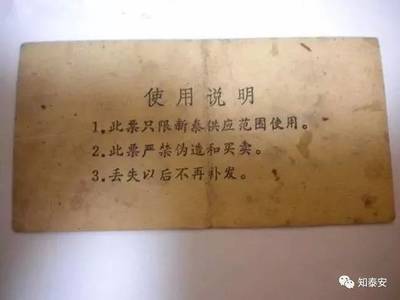 使用说明
1.此票只限新泰供应范围使用。
2.此票严禁伪造和买卖。
3.丢失以后不再补发。
知泰安